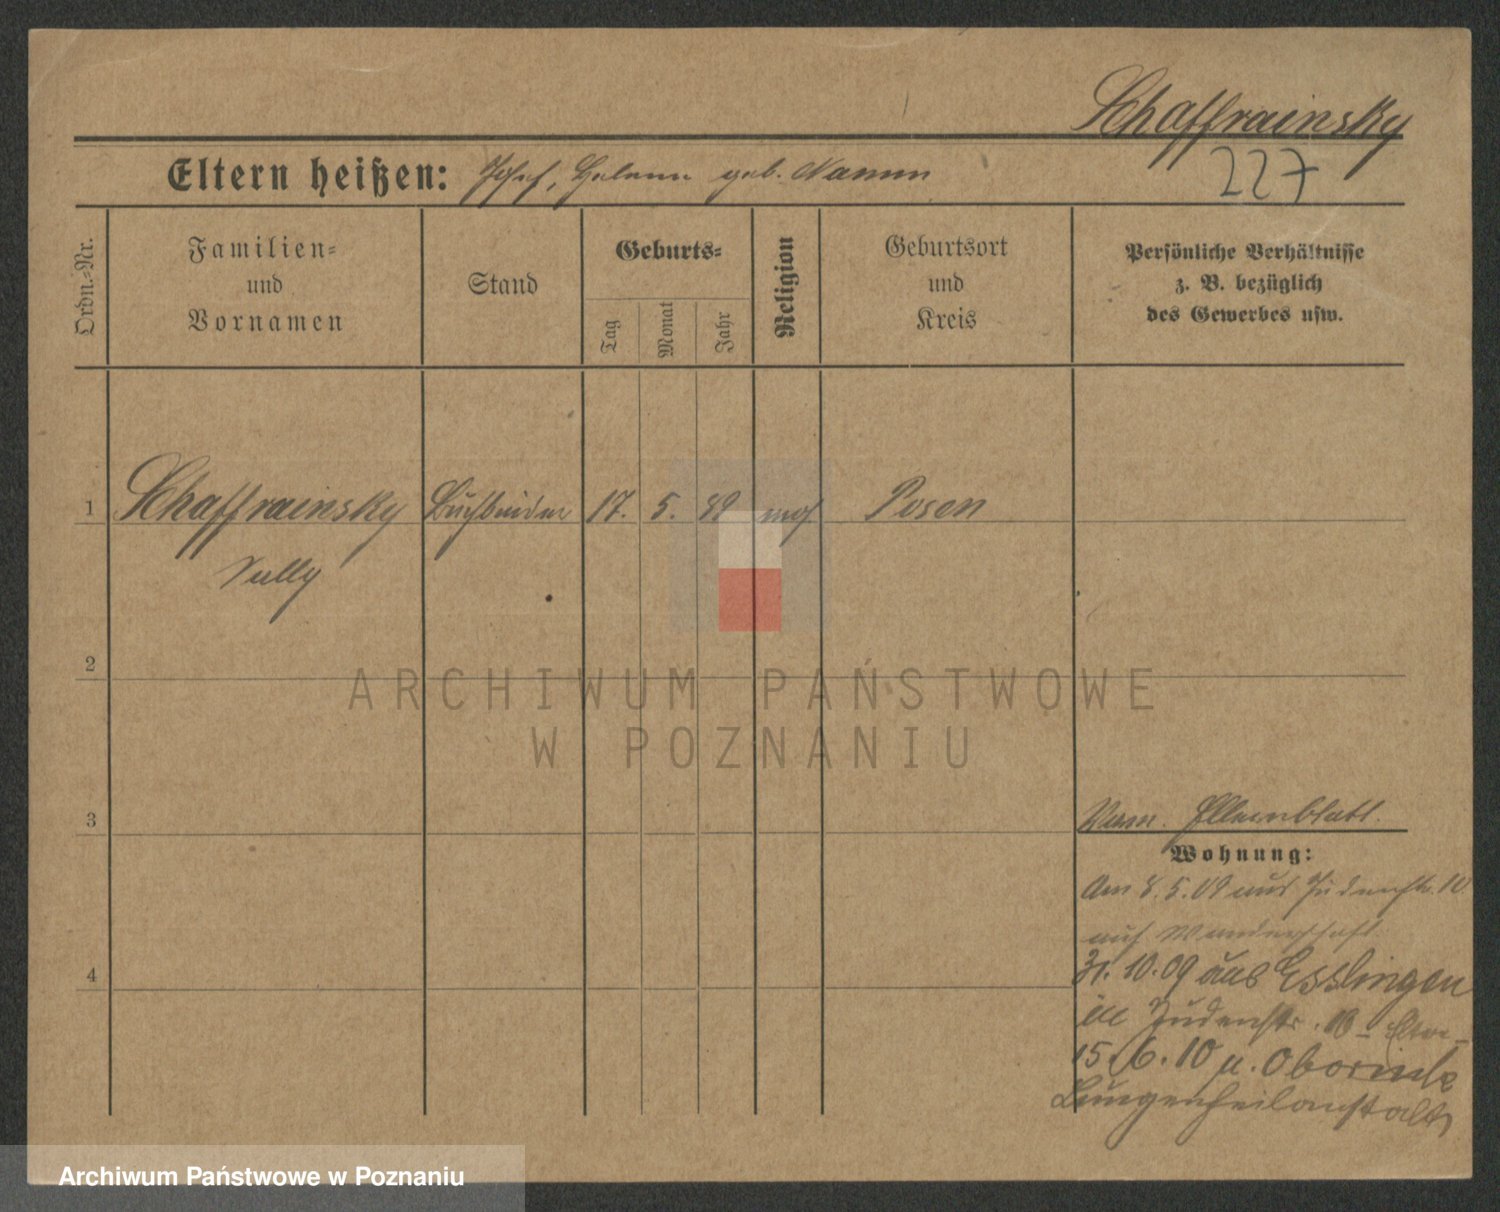 Schaffrainsky
Eltern heißen: Josef, Helene geb. Namm
227
Ordn.-Nr.
Familien-
und
Vornamen
Stand
Geburts-
Tag
Monat
Jahr
Religion
Geburtsort
und
Kreis
Persönliche Verhältnisse
z. B. bezüglich
des Gewerbes usw.
1 Schaffrainsky Buchbinder 17. 5. 89 mos Posen
2
ARCHIWUM PAŃSTWOWE
W POZNANIU
3
Elternblatt.
Wohnung:
Am 8.5.09 aus Judenstr. 10
auf Wanderschaft.
4
31.10.09 aus Esslingen
Judenstr. 10
15.6.10 n. Obornik
Lungenheilanstalt
Archiwum Państwowe w Poznaniu